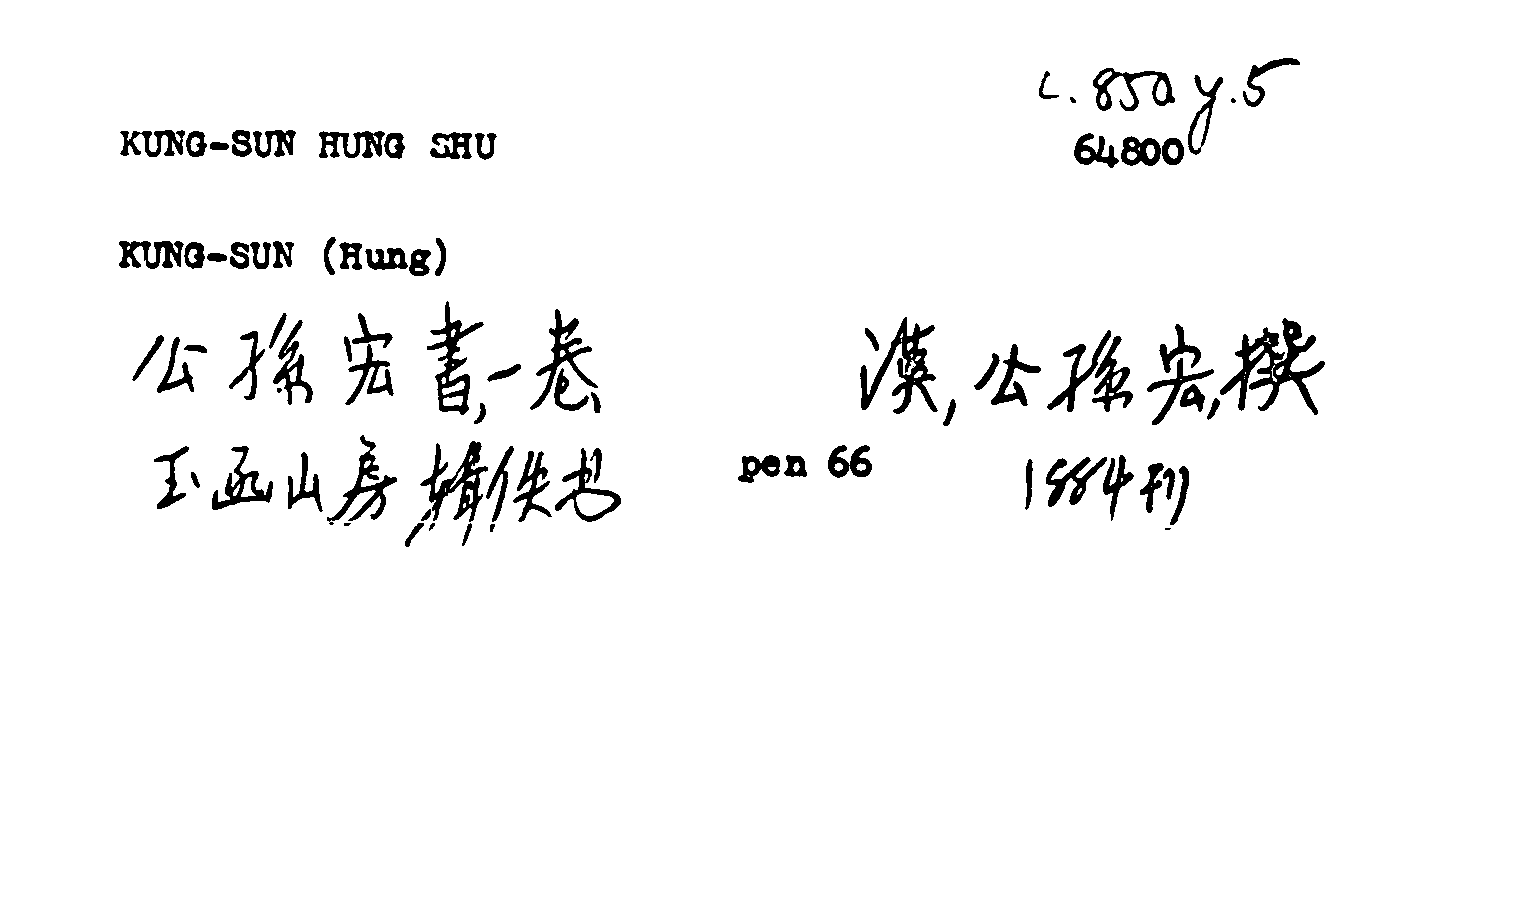 c. 850 y. 5
KUNG-SUN HUNG SHU 64800
KUNG-SUN (Hung)
公孫宏書,一卷 漢,公孫宏,撰
玉函山房輯佚书 pen 66 1884刊